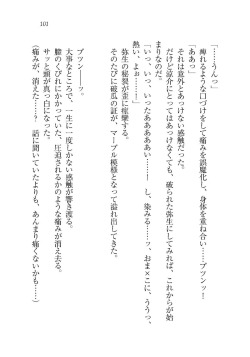 101
「……うんっ」
　痺れるような口づけをして痛みを誤魔化し、身体を重ね合い……ブツンッ！
「ああっ」
　それは意外とあっけない感触だった。
　だけど涼介にとってはあっけなくても、破られた弥生にしてみれば、これからが始
まりなのだ。
「いっ、いっ、いったあああああい……！　し、染みる……ッ、おま×こに、ううっ、
熱い、よぉ……っ！」
　弥生の秘裂が歪に痙攣する。
　そのたびに破瓜の証が、マーブル模様となって溢れ出してきた。
　ブツン――ッ。
　大事なところで、一生に一度しかない感触が響き渡る。
　膣のくびれにかかっていた、圧迫されるかのような痛みが消え去る。
　サッと頭が真っ白になった。
（痛みが、消えた……？　話に聞いていたよりも、あんまり痛くないかも……）